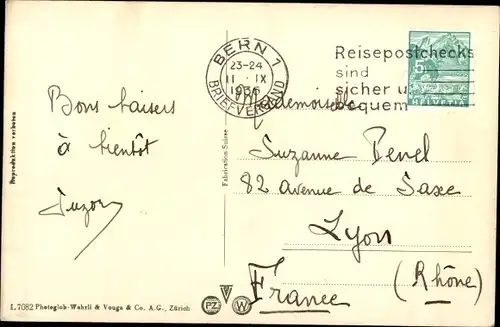 BERN 1
23-24
11·IX
1936
BRIEFVERSAND
Reisepostchecks
sind
sicher u
bequem
5
HELVETIA
Bons baisers
à bientôt
Suzon
Mademoiselle
Suzanne Penel
82 avenue de Saxe
Lyon
(Rhône)
France
Reproduktion verboten
Fabrication Suisse
L 7082 Photoglob-Wehrli & Vouga & Co. A.G., Zürich
PZ
W